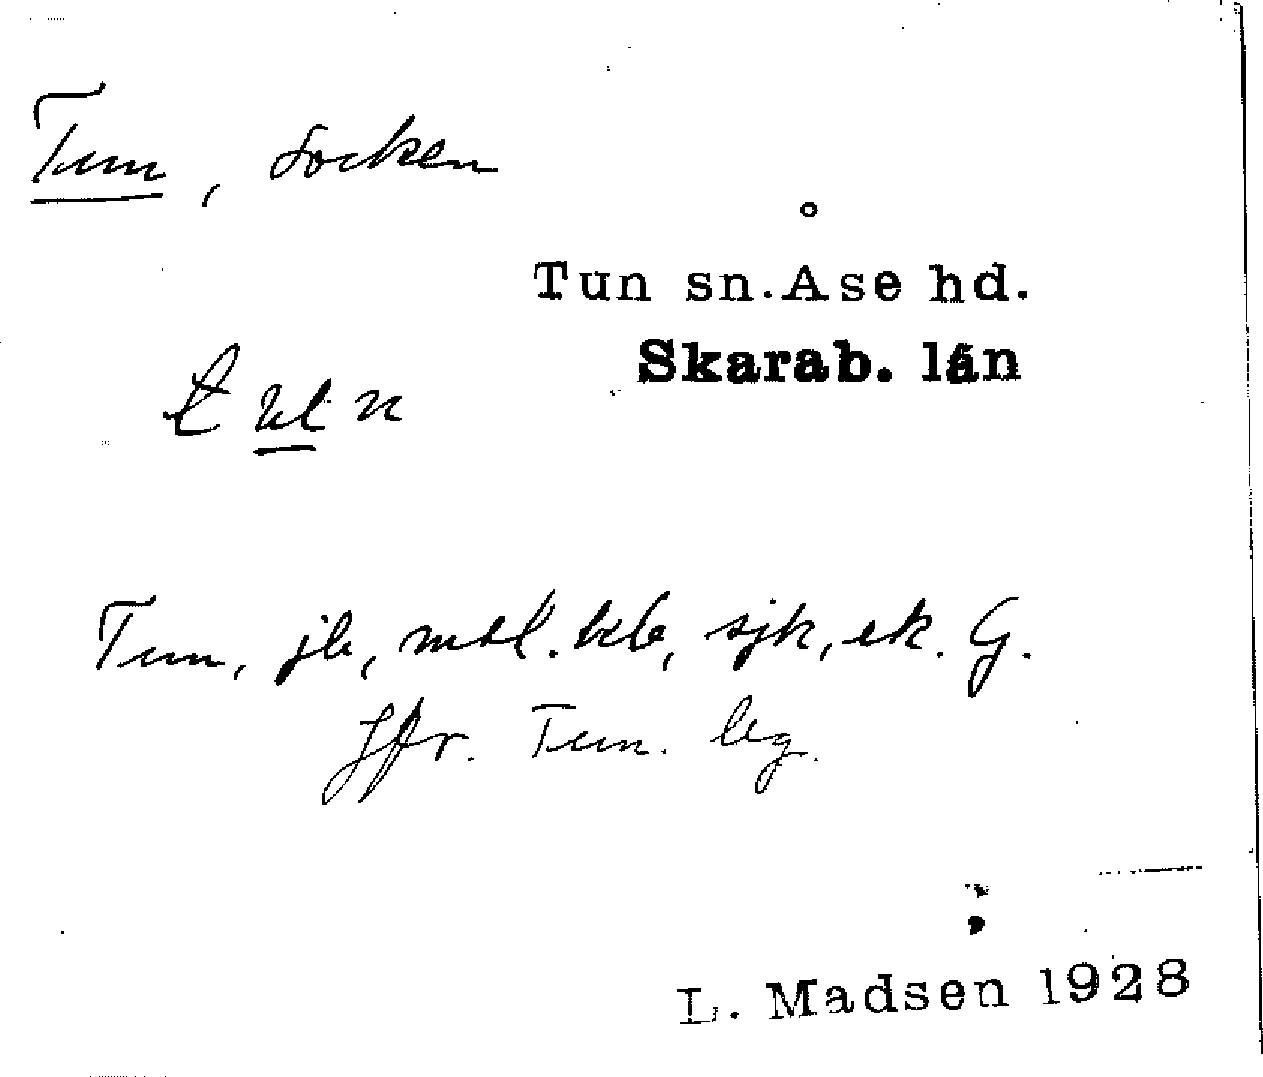 Tun, socken
Tun sn. Åse hd.
Skarab. län
Tun, jb, mtl. kb, sjk, ek. G.
Jfr. Tun. bg.
L. Madsen 1928